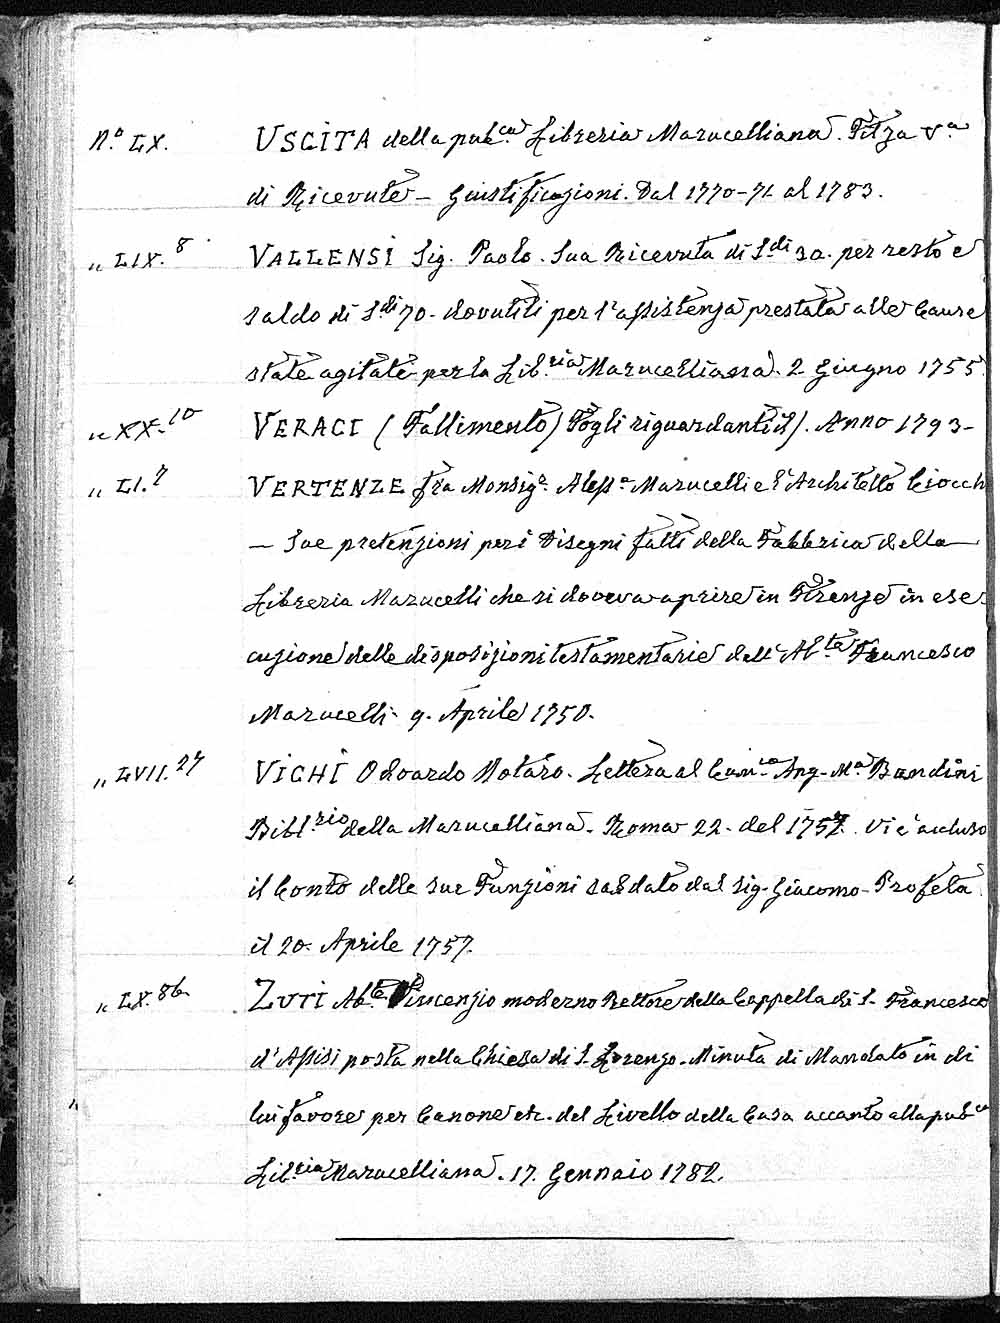 N.° LX. USCITA della pub.ca Libreria Marucelliana. Filza Va
di Ricevute – Giustificazioni. Dal 1770-71 al 1783.
„ LIX. 8 VALLENSI Sig. Paolo. Sua Ricevuta di S.di 30. per resto e
saldo di S.di 70. dovutili per l'assistenza prestata alle Cause
state agitate per la Lib.ria Marucelliana. 2 Giugno 1755.
„ XX. 10 VERACI (Fallimento) Fogli riguardanti il). Anno 1793 –
„ LI. 7 VERTENZE fra Monsig.r Aless.o Marucelli e l'Architetto Ciocch
– Sue pretenzioni per i Disegni fatti della Fabbrica della
Libreria Marucelli che si doveva aprire in Firenze in ese-
cuzione delle disposizioni testamentarie dell'Ab.te Francesco
Marucelli. 9. Aprile 1750.
„ LVII. 27 VICHI Odoardo Notaro. Lettera al Can.co Ang. M.a Bandini
Bibl.rio della Marucelliana. Roma 22. del 1757. Vi è accluso
il Conto delle sue Funzioni saldato dal Sig. Giacomo Profeta
il 20. Aprile 1757.
„ LX. 86 ZUTI Ab.te Vincenzio moderno Rettore della Cappella di S. Francesco
d'Assisi posta nella Chiesa di S. Lorenzo. Minuta di Mandato in di
lui favore per Canone etc. del Livello della Casa accanto alla pub.ca
Lib.ria Marucelliana. 17. Gennaio 1782.